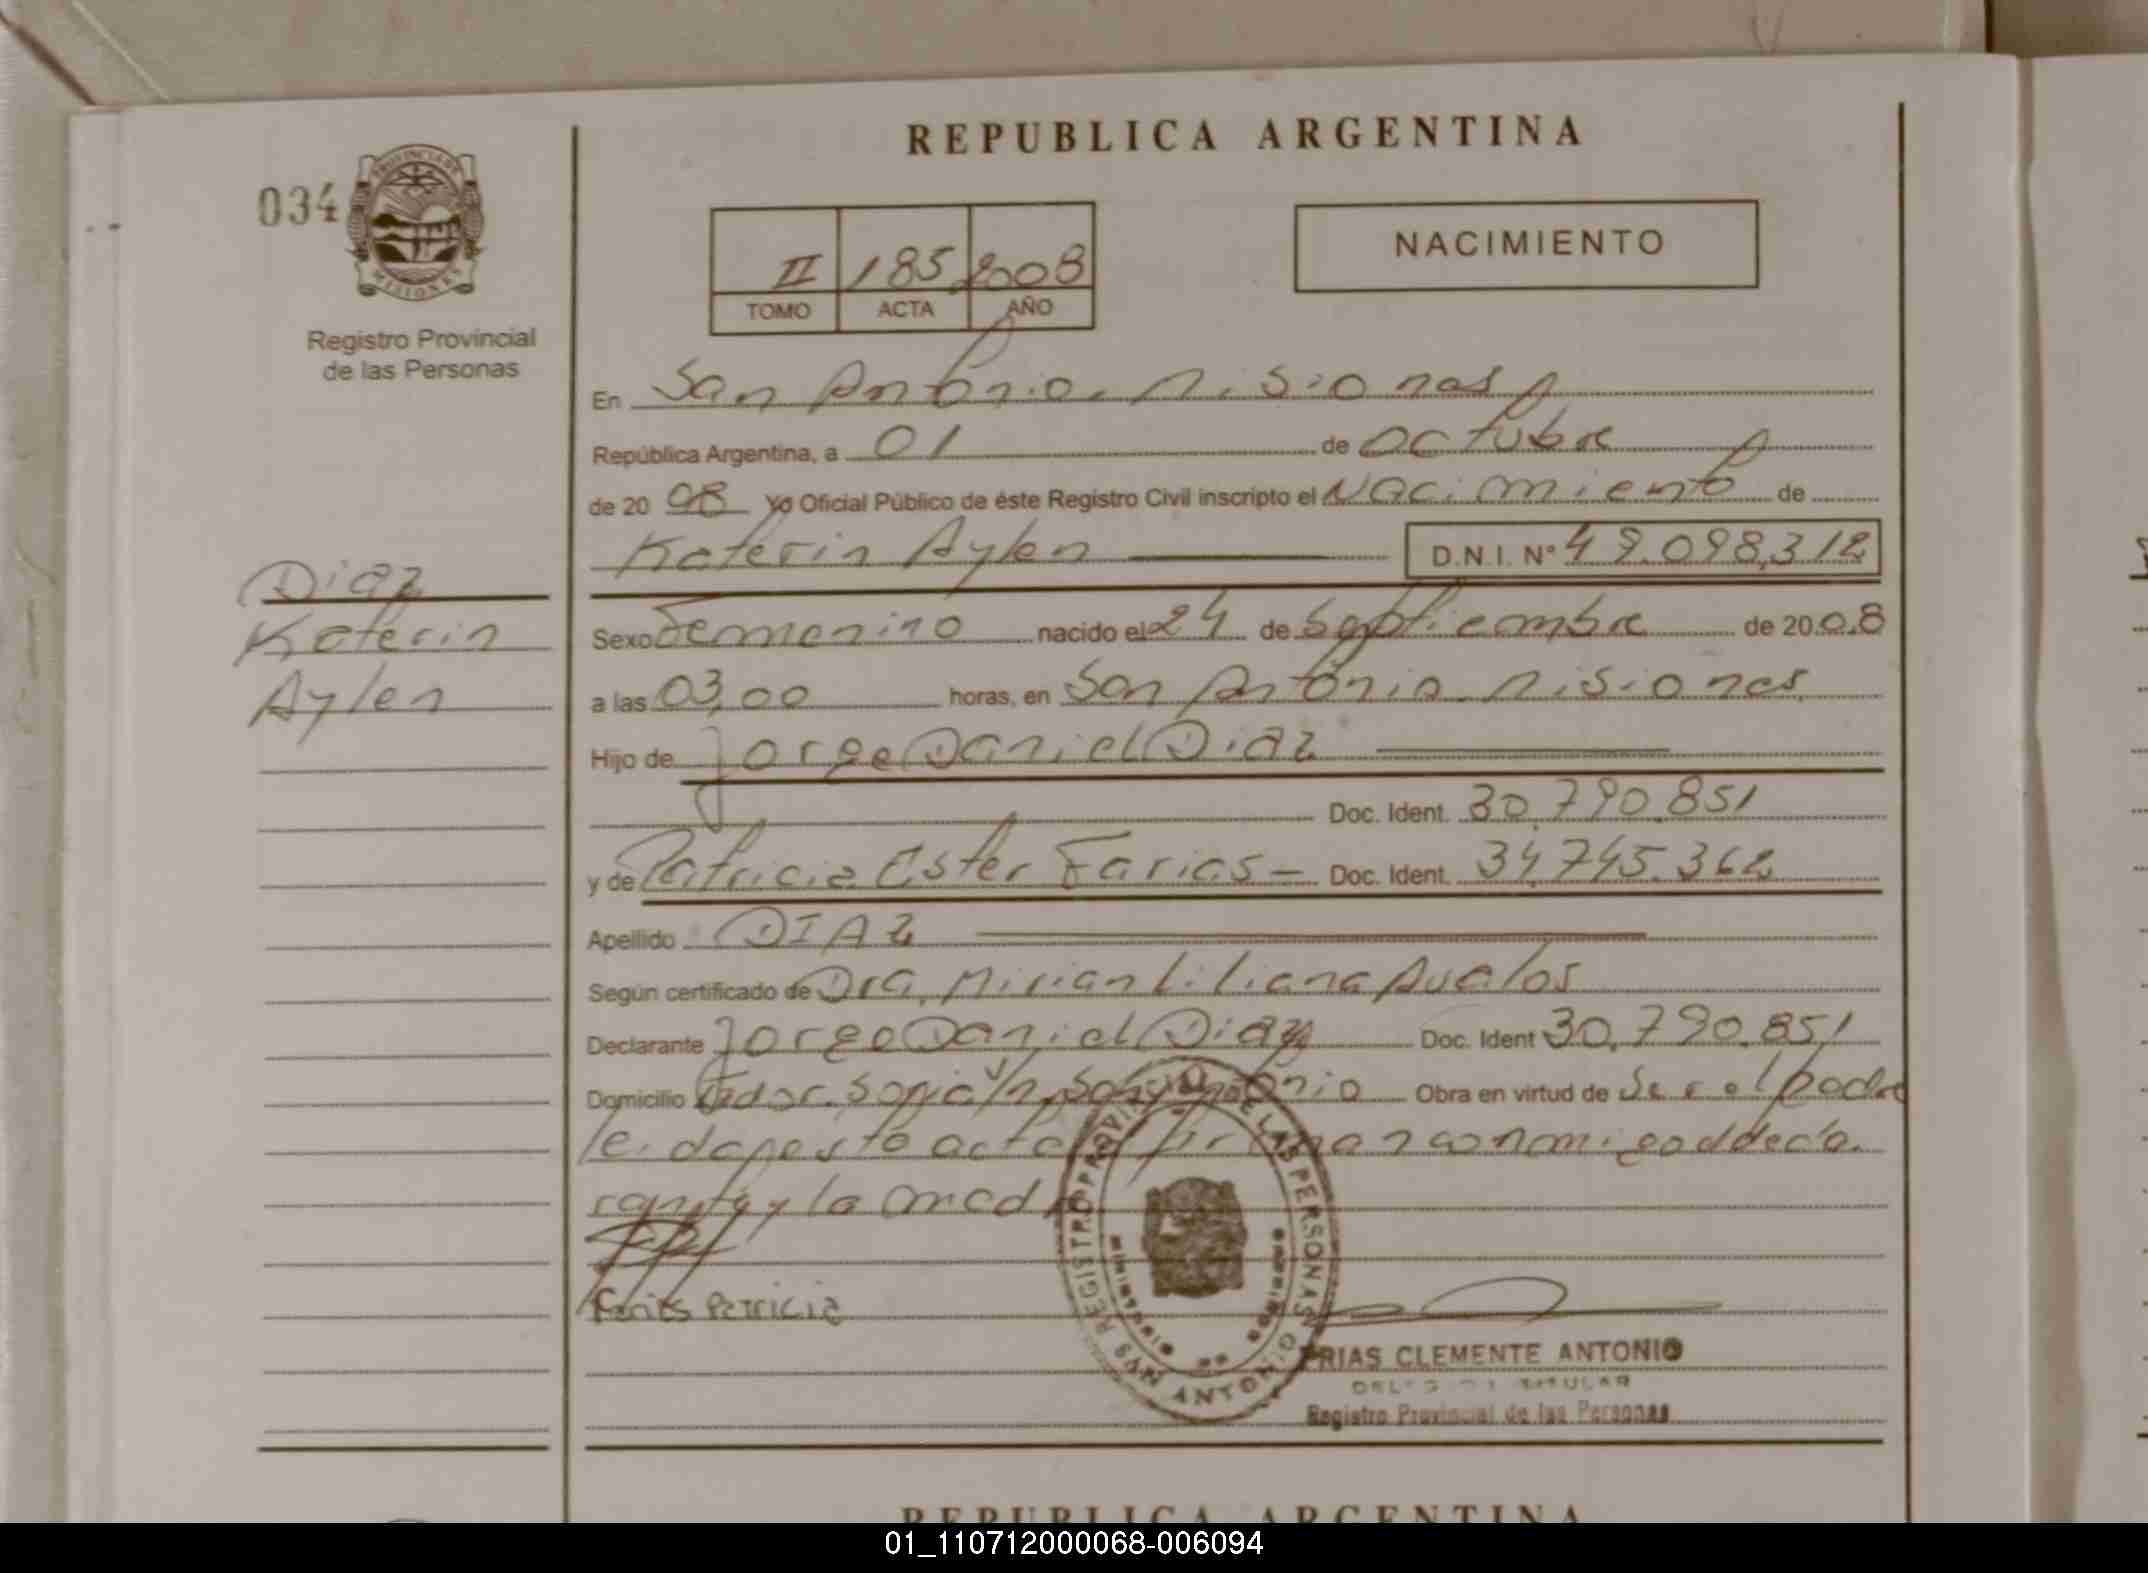 REPUBLICA ARGENTINA
034
PROVINCIA DE MISIONES
Registro Provincial
de las Personas
II 185 2008
TOMO ACTA AÑO
NACIMIENTO
En San Antonio. Misiones
República Argentina, a 01 de octubre
de 20 08 Yo Oficial Público de éste Registro Civil inscripto el Nacimiento de
Katerin Aylen D.N.I. Nº 49.098.312
Diaz
Katerin
Aylen
Sexo Femenino nacido el 24 de Septiembre de 20 08
a las 03,00 horas, en San Antonio. Misiones
Hijo de Jorge Daniel Diaz
Doc. Ident. 30.790.851
y de Patricia Ester Farias Doc. Ident. 34.745.362
Apellido DIAZ
Según certificado de Dra. Mirian Liliana Avalos
Declarante Jorge Daniel Diaz Doc. Ident 30.790.851
Domicilio San Antonio Obra en virtud de Ser el padre
leida presto acta firman conmigo el decla
rante y la madre
Farias Patricia
REGISTRO PROVINCIAL DE LAS PERSONAS
SAN ANTONIO
FRIAS CLEMENTE ANTONIO
TITULAR
Registro Provincial de las Personas
REPUBLICA ARGENTINA
01_110712000068-006094